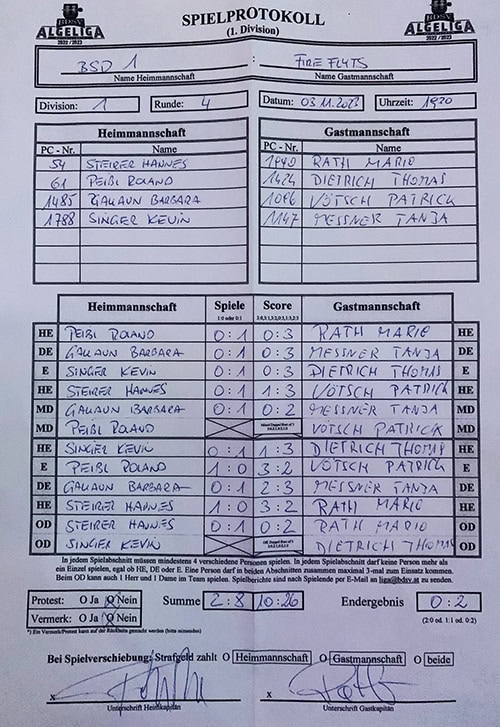 BDSV
ALGELIGA
2022 / 2023
SPIELPROTOKOLL
(1. Division)
BDSV
ALGELIGA
2022 / 2023
BSD 1 : FIRE FLYTS
Name Heimmannschaft Name Gastmannschaft
Division: 1 Runde: 4 Datum: 03.11.2023 Uhrzeit: 1920
Heimmannschaft Gastmannschaft
PC - Nr. Name PC - Nr. Name
54 STEIRER HANNES 1940 RATH MARIO
61 PEIBL ROLAND 1424 DIETRICH THOMAS
1485 GALLAUN BARBARA 1096 VÖTSCH PATRICK
1788 SINGER KEVIN 1147 MESSNER TANJA
Heimmannschaft Spiele Score Gastmannschaft
1:0 oder 0:1
HE PEIBL ROLAND 0:1 0:3 RATH MARIO HE
DE GALLAUN BARBARA 0:1 0:3 MESSNER TANJA DE
E SINGER KEVIN 0:1 0:3 DIETRICH THOMAS E
HE STEIRER HANNES 0:1 1:3 VÖTSCH PATRICK HE
MD GALLAUN BARBARA 0:1 0:2 MESSNER TANJA MD
MD PEIBL ROLAND VÖTSCH PATRICK MD
HE SINGER KEVIN 0:1 1:3 DIETRICH THOMAS HE
E PEIBL ROLAND 1:0 3:2 VÖTSCH PATRICK E
DE GALLAUN BARBARA 0:1 2:3 MESSNER TANJA DE
HE STEIRER HANNES 1:0 3:2 RATH MARIO HE
OD STEIRER HANNES 0:1 0:2 RATH MARIO OD
OD SINGER KEVIN DIETRICH THOMAS OD
In jedem Spielabschnitt müssen mindestens 4 verschiedene Personen spielen. In jedem Spielabschnitt darf keine Person mehr als
ein Einzel spielen, egal ob HE, DE oder E. Eine Person darf in beiden Abschnitten zusammen maximal 3-mal zum Einsatz kommen.
Beim OD kann auch 1 Herr und 1 Dame im Team spielen. Spielberichte sind nach Spielende per E-Mail an liga@bdsv.at zu senden.
Protest: O Ja O Nein Summe 2:8 10:26 Endergebnis 0:2
Vermerk: O Ja O Nein (2:0 od. 1:1 od. 0:2)
*) Ein Vermerk/Protest kann auf der Rückseite gemacht werden (bitte ankreuzen)
Bei Spielverschiebung: Strafgeld zahlt O Heimmannschaft O Gastmannschaft O beide
x x
Unterschrift Heimkapitän Unterschrift Gastkapitän